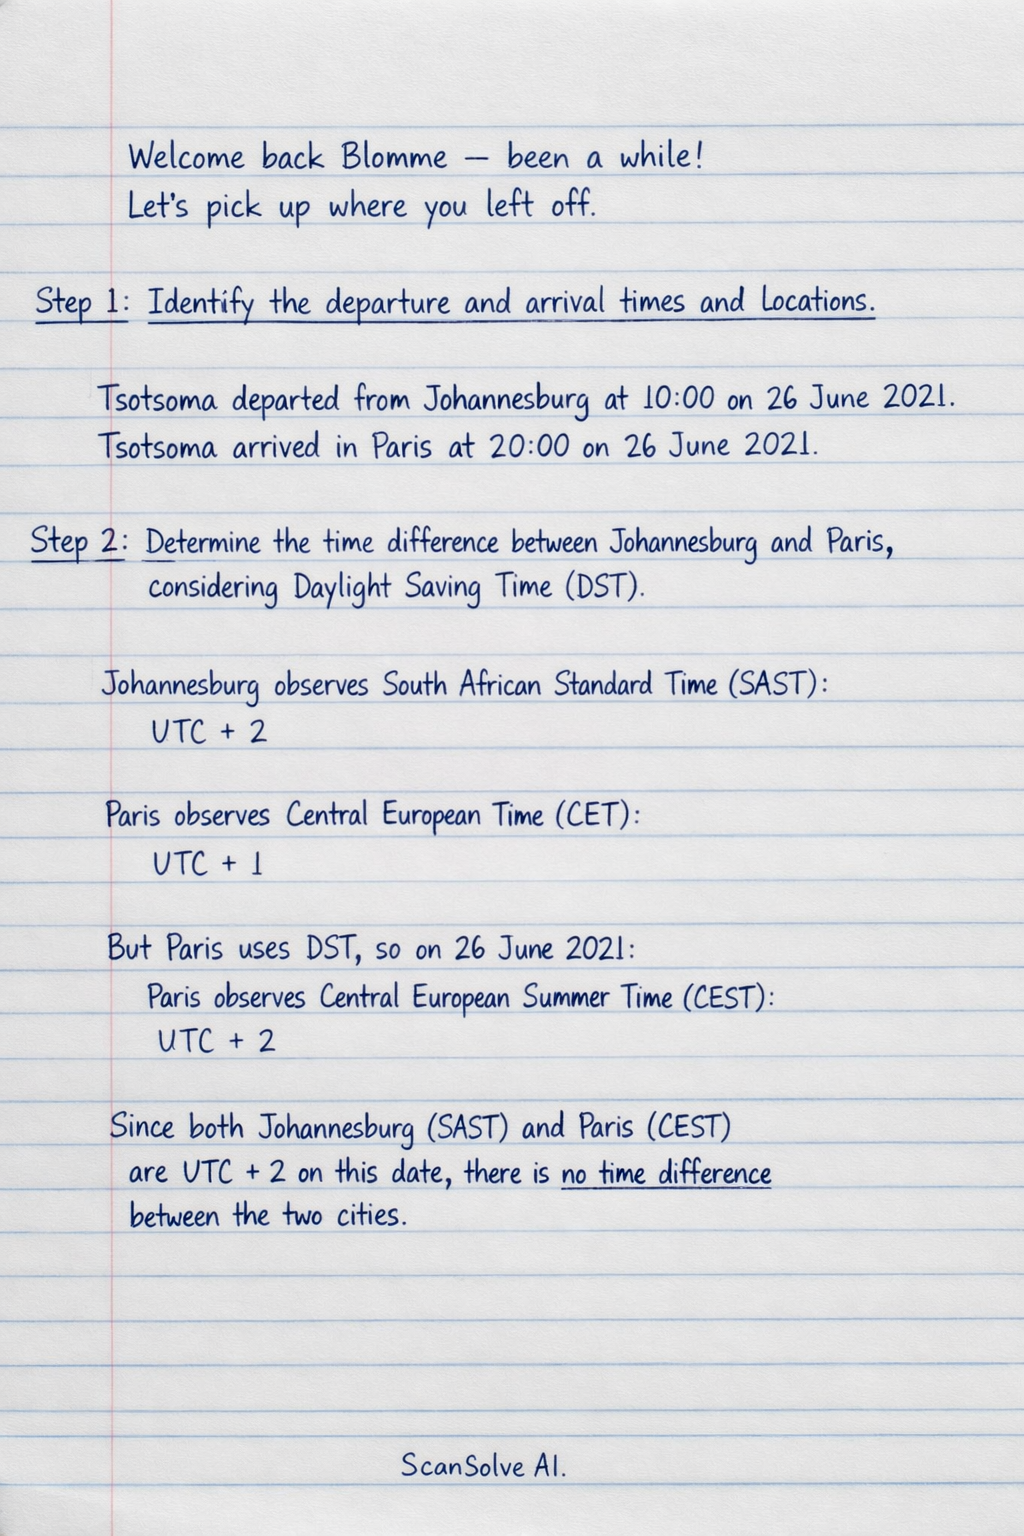 Welcome back Blomme — been a while!
Let's pick up where you left off.
Step 1: Identify the departure and arrival times and Locations.
Tsotsoma departed from Johannesburg at 10:00 on 26 June 2021.
Tsotsoma arrived in Paris at 20:00 on 26 June 2021.
Step 2: Determine the time difference between Johannesburg and Paris,
considering Daylight Saving Time (DST).
Johannesburg observes South African Standard Time (SAST):
UTC + 2
Paris observes Central European Time (CET):
UTC + 1
But Paris uses DST, so on 26 June 2021:
Paris observes Central European Summer Time (CEST):
UTC + 2
Since both Johannesburg (SAST) and Paris (CEST)
are UTC + 2 on this date, there is no time difference
between the two cities.
ScanSolve AI.